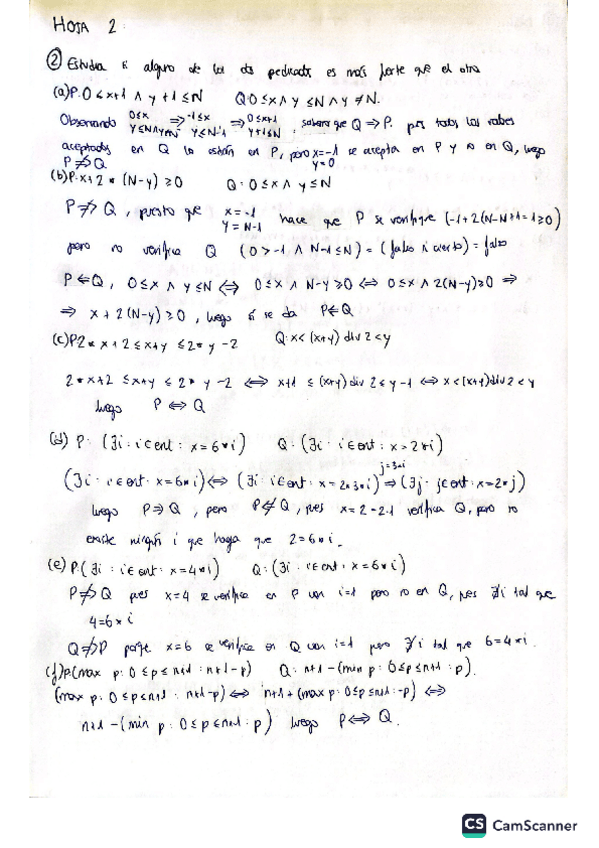 HOJA 2:
② Estudia si alguno de los dos predicados es más fuerte que el otro
(a) P: 0 ≤ x+1 ∧ y+1 ≤ N Q: 0 ≤ x ∧ y ≤ N ∧ y ≠ N.
Observando 0≤x y≤N∧y≠N ⇒ -1≤x y≤N-1 ⇒ 0≤x+1 y+1≤N, que Q ⇒ P. pues todos los valores
aceptados en Q lo están en P, pero x=-1 y=0 se acepta en P y no en Q, luego
P ⇏ Q
(b) P: x+2*(N-y) ≥ 0 Q: 0 ≤ x ∧ y ≤ N
P ⇏ Q, puesto que x=-1 y=N-1 hace que P se verifique (-1+2(N-N+1=1≥0)
pero no verifica Q (0 > -1 ∧ N-1 ≤ N) = (falso ∧ cierto) = falso
P ⇐ Q, 0≤x ∧ y≤N ⇔ 0≤x ∧ N-y≥0 ⇔ 0≤x ∧ 2(N-y)≥0 ⇒
⇒ x+2(N-y) ≥ 0, luego sí se da P⇐Q
(c) P: 2*x+2 ≤ x+y ≤ 2*y-2 Q: x < (x+y) div 2 < y
2*x+2 ≤ x+y ≤ 2*y-2 ⇔ x+1 ≤ (x+y) div 2 ≤ y-1 ⇔ x < (x+y) div 2 < y
luego P ⇔ Q
(d) P: (∃i: i∈ent: x=6*i) Q: (∃i: i∈ent: x=2*i)
(∃i: i∈ent: x=6*i) ⇔ (∃i: i∈ent: x=2*3*i) ⇒ j=3*i (∃j: j∈ent: x=2*j)
luego P ⇒ Q, pero P ⇍ Q, pues x=2=2·1 verifica Q, pero no
existe ningún i que haga que 2=6*i.
(e) P: (∃i: i∈ent: x=4*i) Q: (∃i: i∈ent: x=6*i)
P ⇏ Q pues x=4 se verifica en P con i=1 pero no en Q, pues ∄i tal que
4=6*i
Q ⇏ P porque x=6 se verifica en Q con i=1 pero ∄i tal que 6=4*i.
(f) P: (max p: 0≤p≤n+1: n+1-p) Q: n+1-(min p: 0≤p≤n+1: p).
(max p: 0≤p≤n+1: n+1-p) ⇔ n+1+(max p: 0≤p≤n+1: -p) ⇔
n+1-(min p: 0≤p≤n+1: p) luego P ⇔ Q.
CS CamScanner